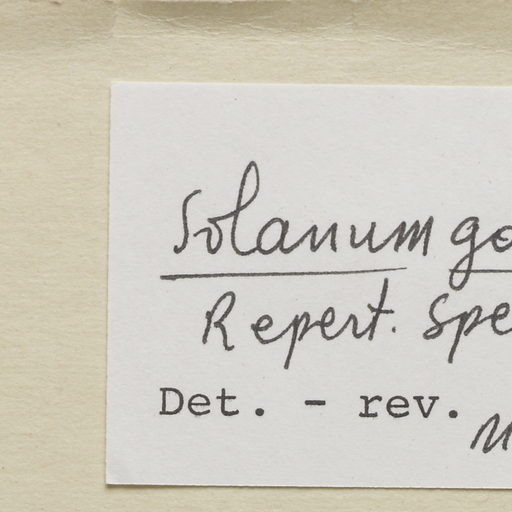 Solanum go
Repert. Spe
Det. - rev.